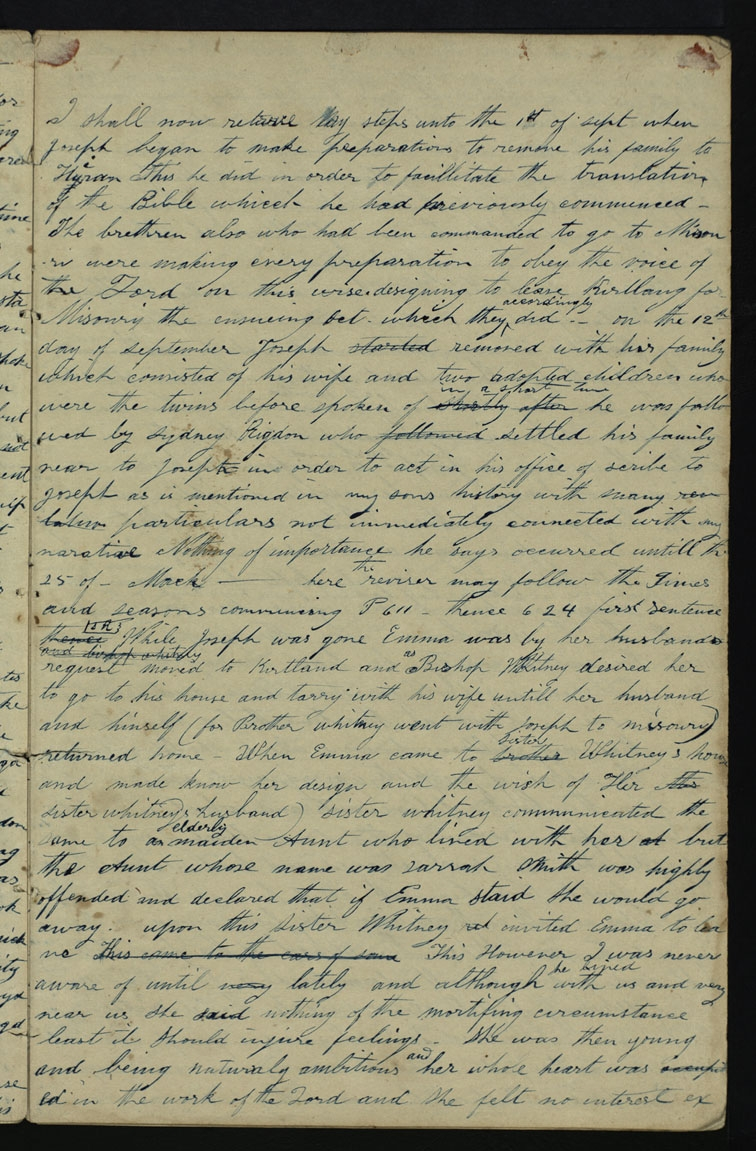 I shall now return my steps unto the 1st of sept when
Joseph began to make preparation to remove his family to
Hiran this he did in order to facillitate the translation
of the Bible which he had previously commenced -
The brethren also who had been commanded to go to Misou
ri were making every preparation to obey the voice of
the Lord on this wise designing to leave Kirtlang for
accordingly
Misoury the ensueing oct. which they did - on the 12th
day of september Joseph started removed with his family
which consisted of his wife and two adopted children who
in a short time
were the twins before spoken of shortly after he was follo
wed by Sydney Rigdon who followed settled his family
near to Joseph in order to act in his office of scribe to
Joseph as is mentioned in my sons history with many rev
lation particulars not immediately connected with my
narative Nothing of importance he says occurred untill th
25 of - March — here the reviser may follow the Times
and seasons commencing P 611 - thence 624 first sentence
thence While Joseph was gone Emma was by her husbands
and bishop whitney
request moved to Kirtland and as Bishop Whitney desired her
to go to his house and tarry with his wife untill her husband
and himself (for Brother whitney went with Joseph to missoury)
sister
returned home - When Emma came to brother Whitney's hous
and made know her design and the wish of Her this
sister whitney's husband) sister whitney communicated the
elderly
same to an maiden Aunt who lived with her at but
the Aunt whose name was sarrah Smith was highly
offended and declared that if Emma staid she would go
away. upon this sister Whitney invited Emma to lea
ve This came to the ears of some This However I was never
aware of until very lately and although she lived with us and very
near us she said nothing of the mortifing circumstance
least it should injure feelings - she was then young
and being naturaly ambitious and her whole heart was occupi
ed in the work of the Lord and she felt no interest ex